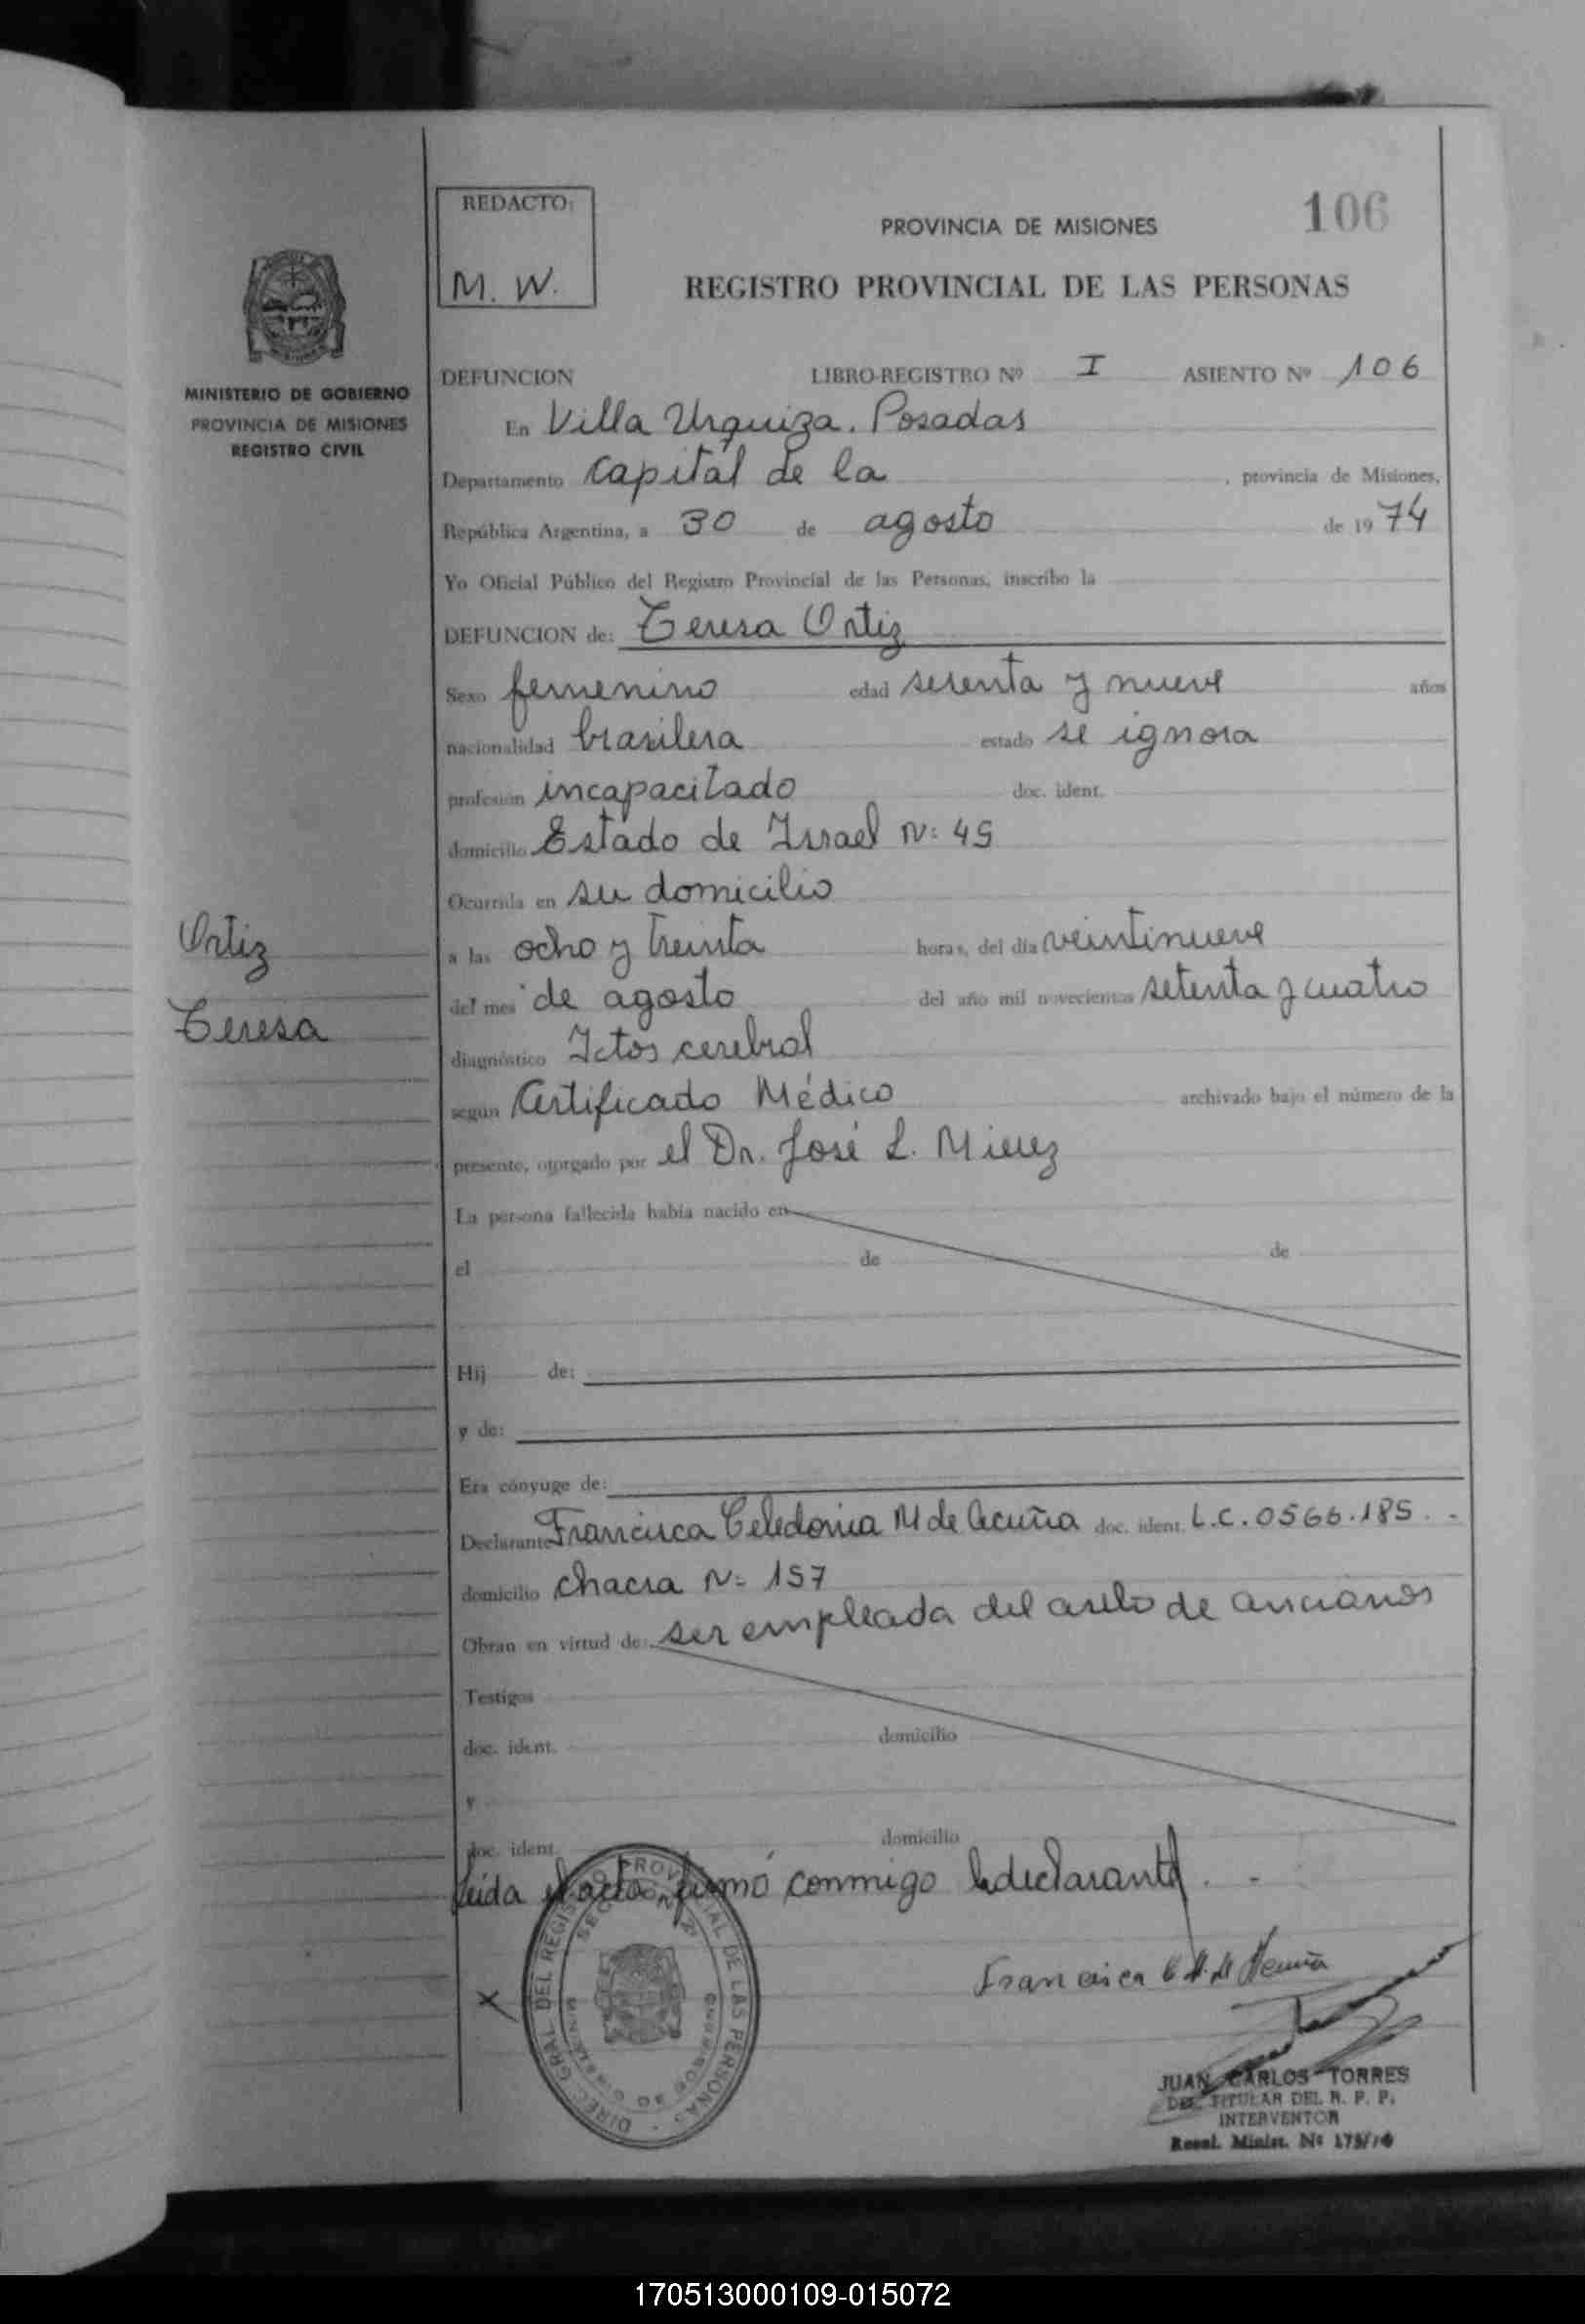 REDACTO:
M. W.
PROVINCIA DE MISIONES
106
REGISTRO PROVINCIAL DE LAS PERSONAS
MINISTERIO DE GOBIERNO
PROVINCIA DE MISIONES
REGISTRO CIVIL
DEFUNCION LIBRO-REGISTRO Nº I ASIENTO Nº 106
En Villa Urquiza. Posadas
Departamento Capital de la , provincia de Misiones,
República Argentina, a 30 de agosto de 1974
Yo Oficial Público del Registro Provincial de las Personas, inscribo la
DEFUNCION de: Teresa Ortiz
Sexo femenino edad setenta y nueve años
nacionalidad brasilera estado se ignora
profesión incapacitado doc. ident.
domicilio Estado de Israel N: 45
Ocurrida en su domicilio
Ortiz
a las ocho y treinta horas, del día veintinueve
del mes de agosto del año mil novecientos setenta y cuatro
Teresa
diagnóstico Ictos cerebral
según Certificado Médico archivado bajo el número de la
presente, otorgado por el Dr. José L. Mierez
La persona fallecida había nacido en
el de de
Hij de:
y de:
Era cónyuge de:
Declarante Francisca Celedonia M de Acuña doc. ident. L.C. 0566.185. -
domicilio chacra N= 157
Obran en virtud de: ser empleada del asilo de ancianos
Testigos
doc. ident. domicilio
y
doc. ident. domicilio
Leída el acta, firmó conmigo la declarante. -
DIREC. GRAL DEL REGISTRO PROVINCIAL DE LAS PERSONAS
SECCION 2ª
Francisca C M. de Acuña
JUAN CARLOS TORRES
DEL. TITULAR DEL R. P. P.
INTERVENTOR
Resol. Minist. Nº
170513000109-015072